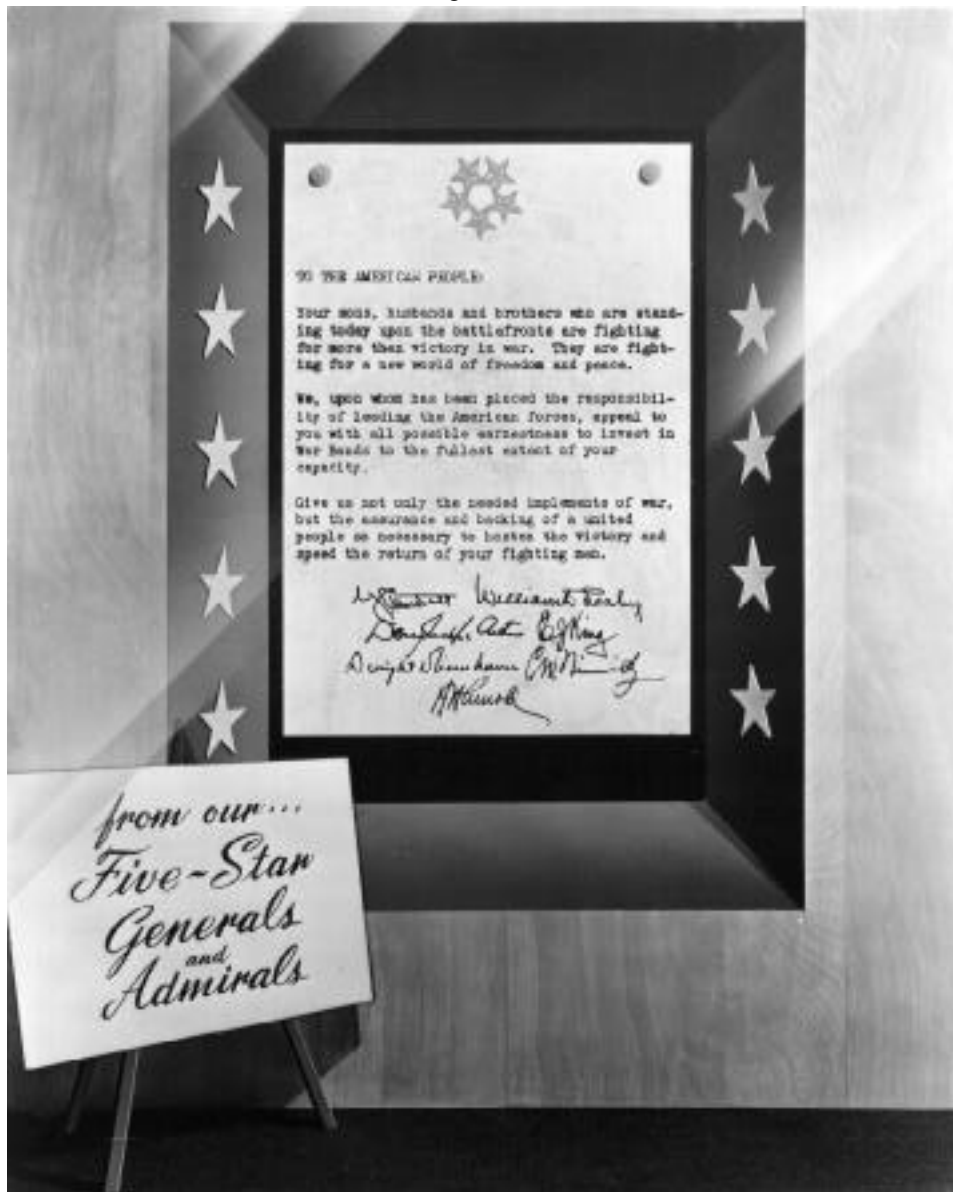 TO THE AMERICAN PEOPLE:
Your sons, husbands and brothers who are stand-
ing today upon the battlefronts are fighting
for more than victory in war. They are fight-
ing for a new world of freedom and peace.
We, upon whom has been placed the responsibil-
ity of leading the American forces, appeal to
you with all possible earnestness to invest in
War Bonds to the fullest extent of your
capacity.
Give us not only the needed implements of war,
but the assurance and backing of a united
people so necessary to hasten the victory and
speed the return of your fighting men.
William D. Leahy
Douglas MacArthur E J King
Dwight D Eisenhower C W Nimitz
H H Arnold
from our...
Five-Star
Generals
and
Admirals